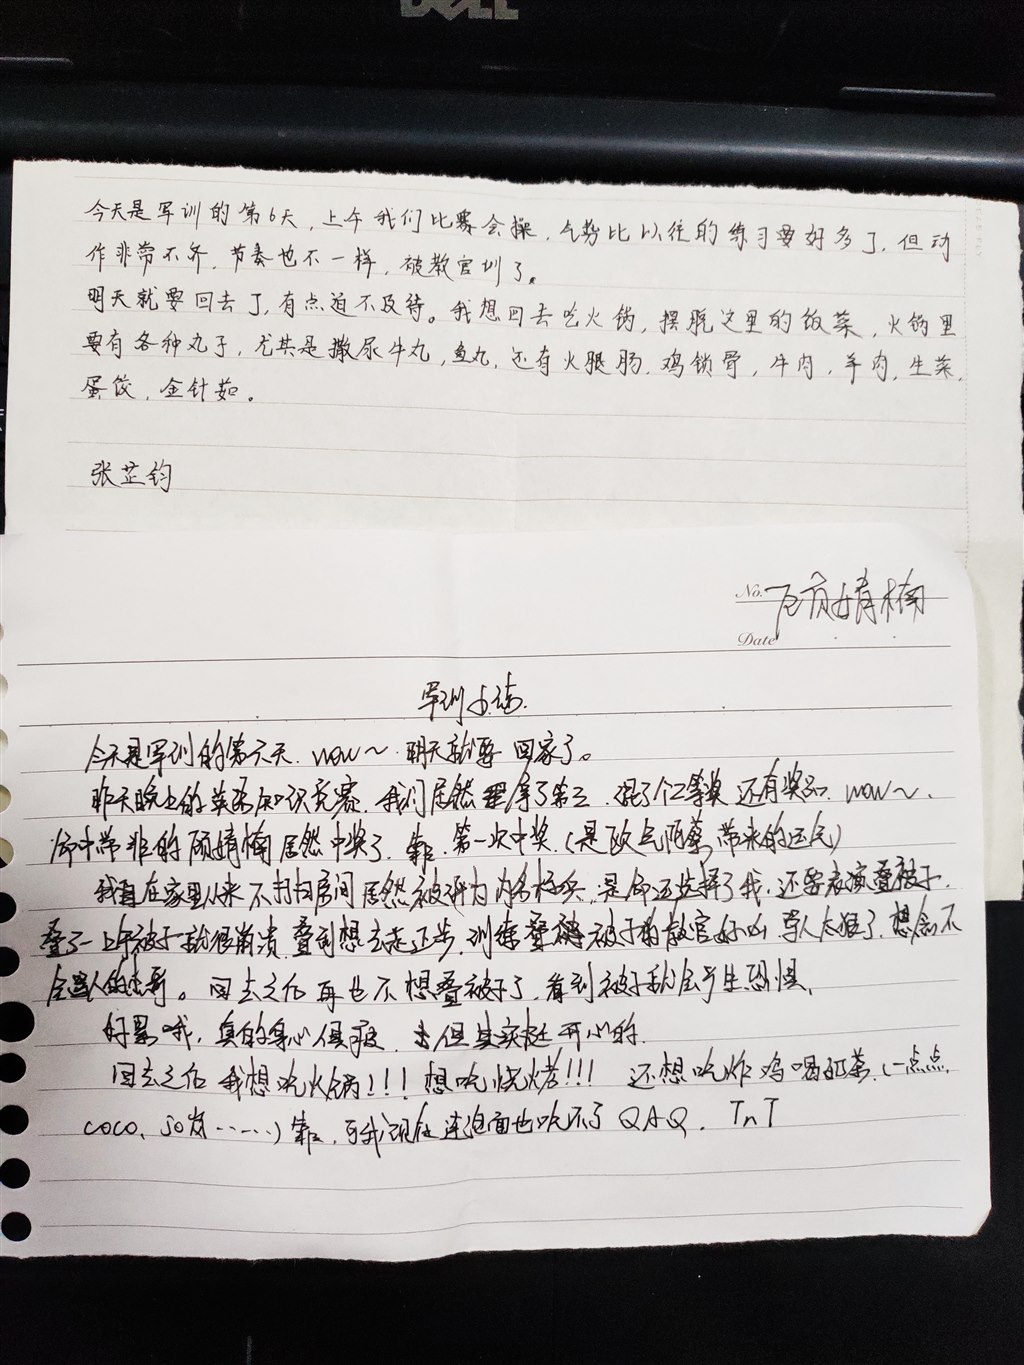 DELL
今天是军训的第6天，上午我们比赛会操，气势比以往的练习要好多了，但动
作非常不齐，节奏也不一样，被教官训了。
明天就要回去了，有点迫不及待。我想回去吃火锅，摆脱这里的饭菜，火锅里
要有各种丸子，尤其是撒尿牛丸，鱼丸，还有火腿肠，鸡锁骨，牛肉，羊肉，生菜，
蛋饺，金针菇。
张芷钧
No. 顾婧楠
Date
军训小结
今天是军训的第六天．wow～．明天就要回家了。
昨天晚上的英语知识竞赛．我们居然拿了第三．混了个二等奖 还有奖品．wow～．
非的顾婧楠居然中奖了．第一次中奖．(是欧气 带来的运气)
我自在家里从来不打扫房间 居然被评为内务标兵．还要表演叠被子．
叠了一上午被子 就很崩溃．叠到想去走正步．训练叠被子的教官好凶 骂人太狠了．想念不
会骂人的。回去之后再也不想叠被子了．看到被子就会产生恐惧．
好累哦，真的身心俱疲．但其实挺开心的．
回去之后 我想吃火锅!!! 想吃烧烤!!! 还想吃炸鸡喝奶茶．(一点点．
coco、50岚……) 可我现在连泡面也吃不了 QAQ．TnT